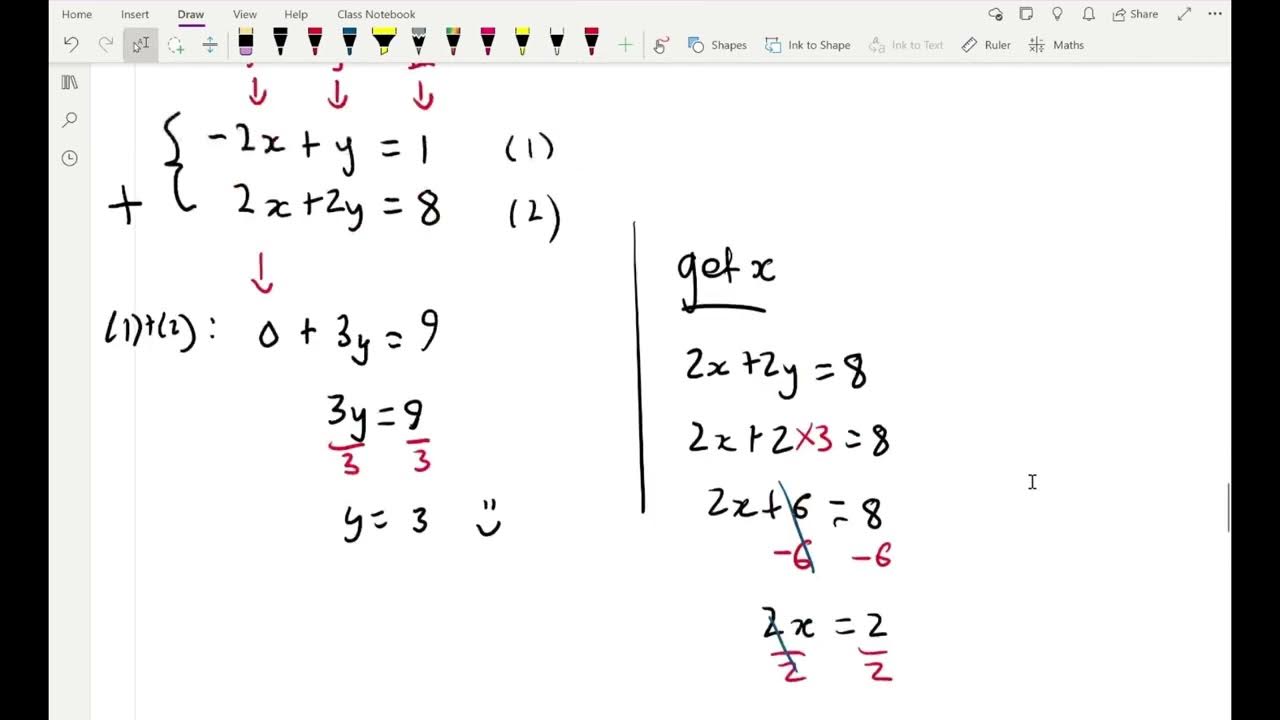 Home Insert Draw View Help Class Notebook Share
Shapes Ink to Shape Ink to Text Ruler Maths
-2x + y = 1 (1)
+ 2x+2y = 8 (2)
(1)+(2): 0 + 3y = 9
3y = 9
3 3
y = 3
get x
2x+2y = 8
2x+2×3 = 8
2x+6 = 8
-6 -6
2x = 2
2 2